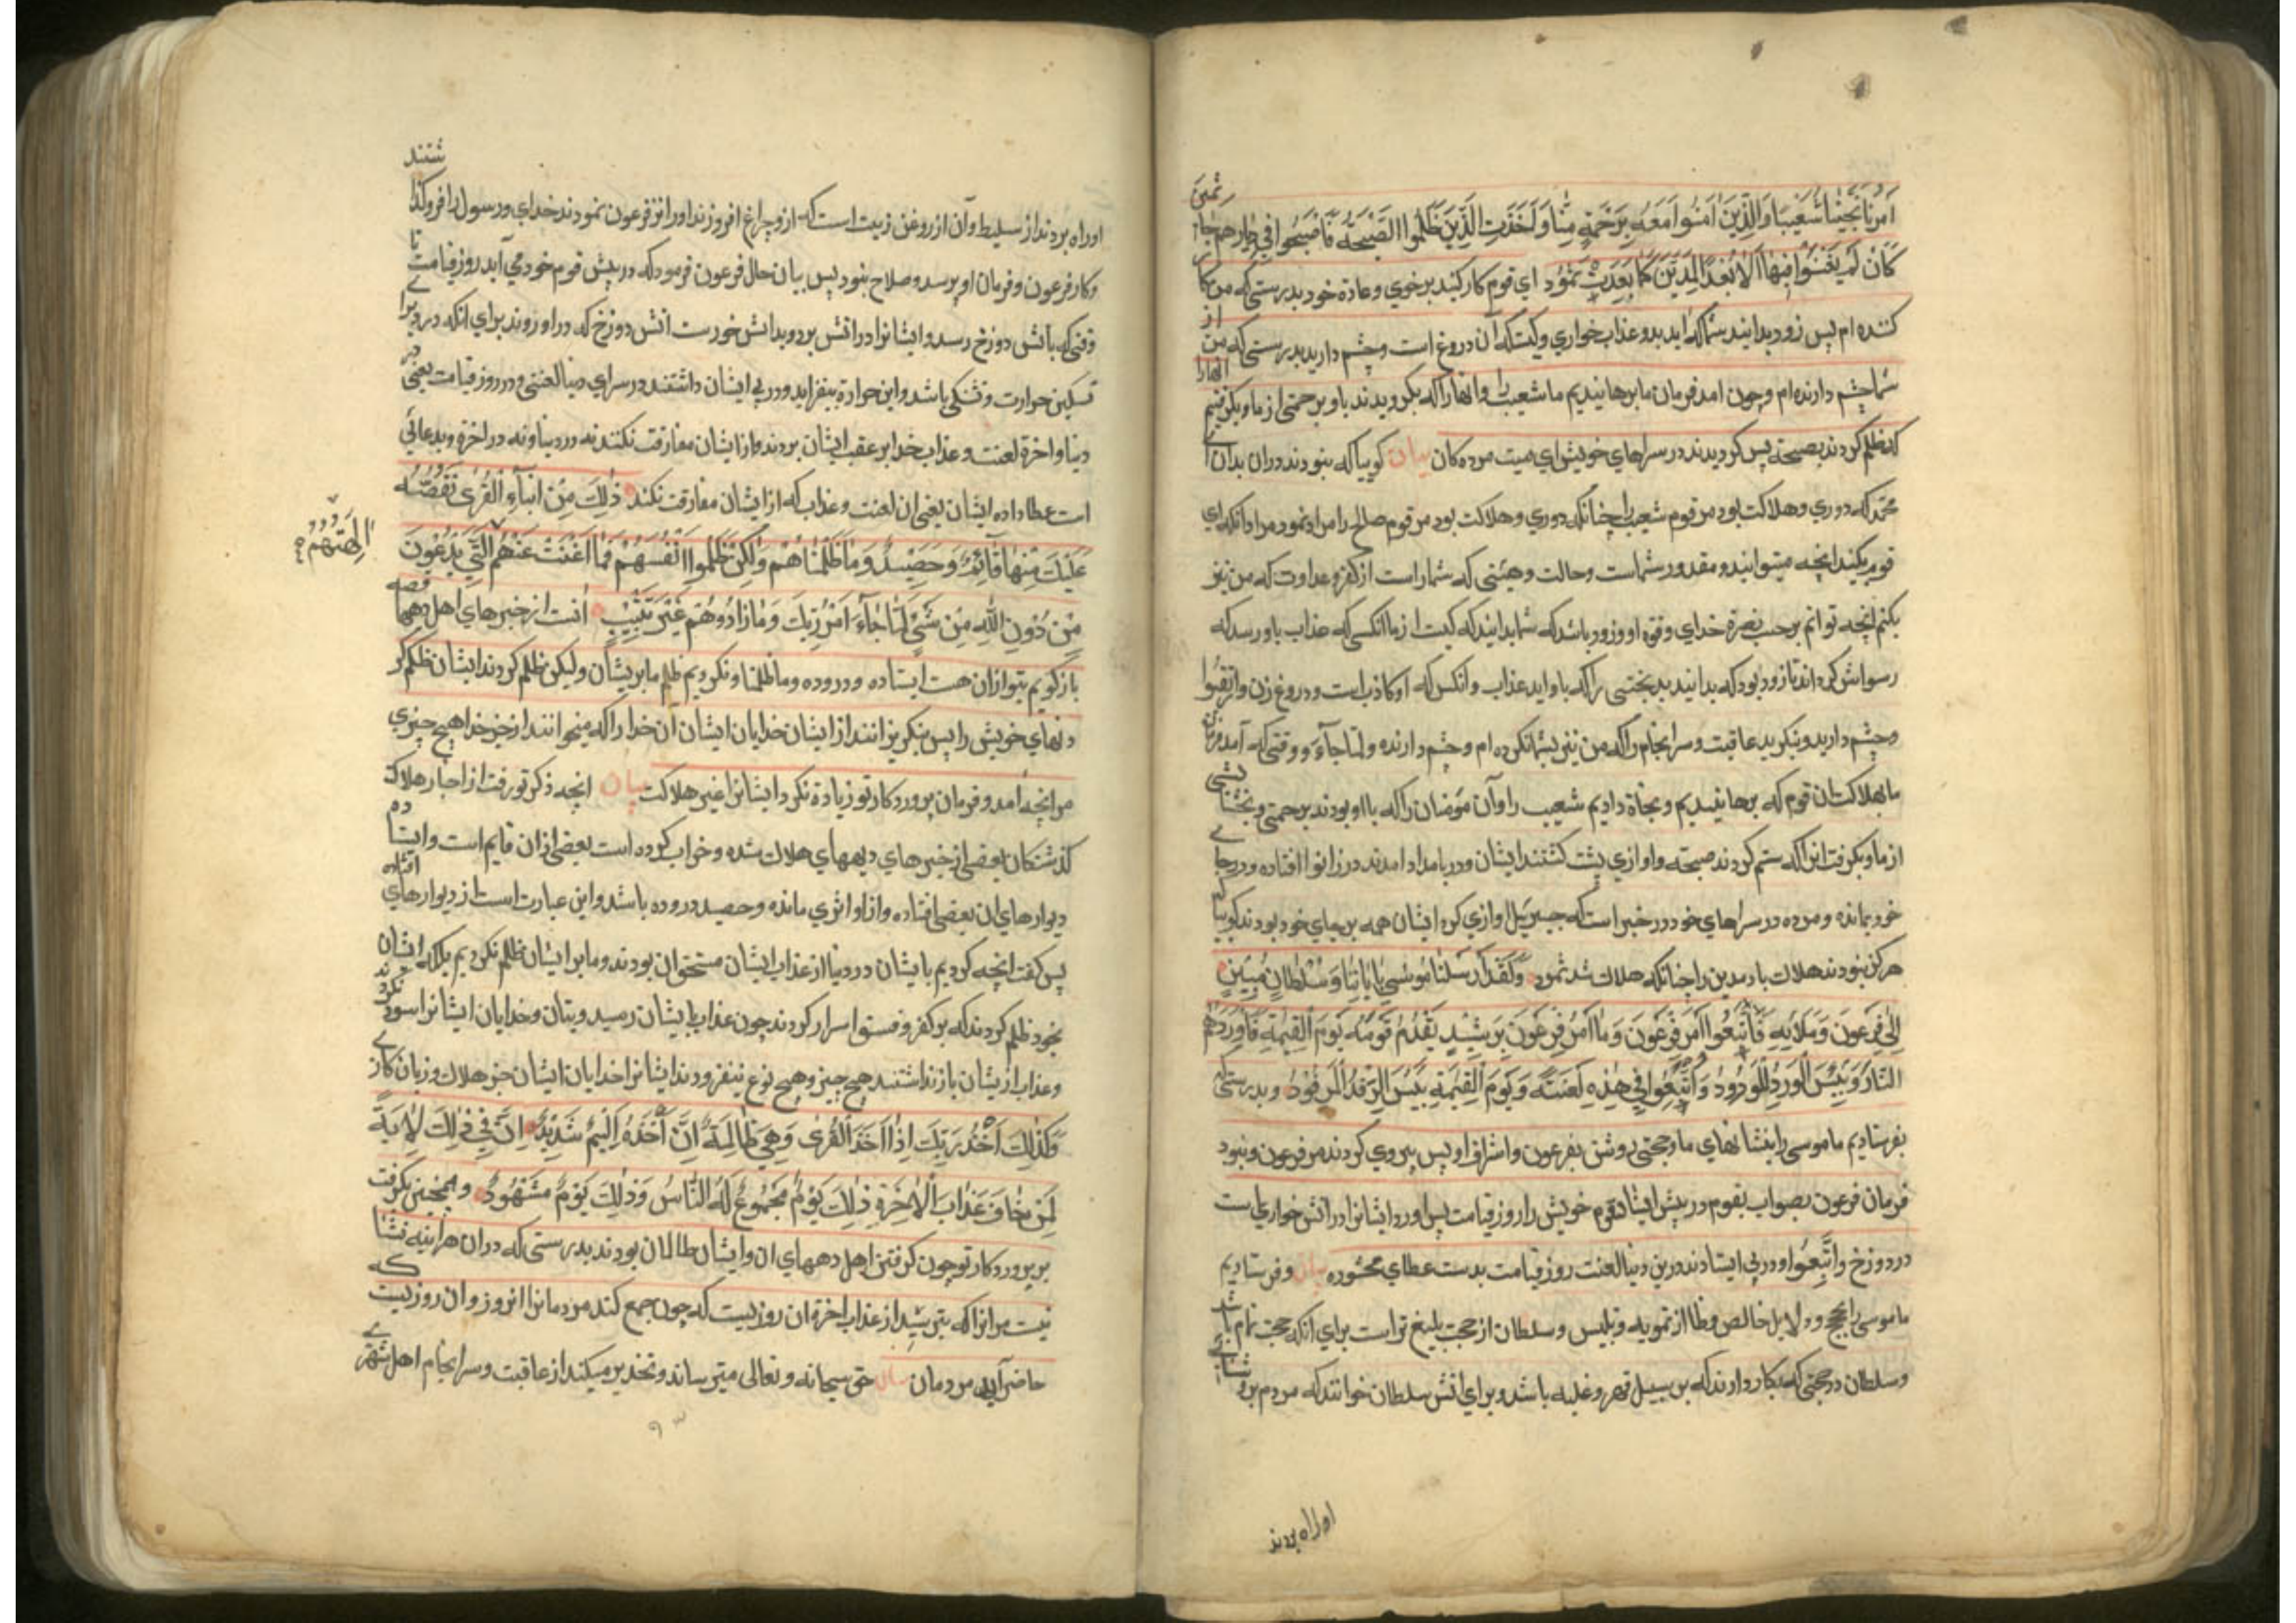 امرنا نجينا شعيبا والذين امنوا معه برحمة منا واخذت الذين ظلموا الصيحة فاصبحوا في ديارهم جاثمين
كان لم يغنوا فيها الا بعدا لمدين كما بعدت ثمود ای قوم کار کنید بر خوی و عادة خود بدرستی که من کار
کننده ام پس زود بدانید شما که اید بدو عذاب خواری و کیست که آن دروغ است و چشم دارید بدرستی که من از
شما چشم دارنده ام و چون امد فرمان ما برهانیدیم ما شعیب را و انها را که بکرویدند باو برحمتی از ما و بکرفتیم انها را
که ظلم کردند بصیحة پس کردیدند در سراهای خویش ای میت مرده کان بیان کوییا که بنودند دران بدان ای
محمد که دوری و هلاکت بود مر قوم شعیب را چنانکه دوری و هلاکت بود مر قوم صالح را مراد ثمود مراد انکه ای
قوم بکنید انچه میتوانید و مقدور شماست و حالت و هیئتی که شما راست از کفر و عداوت که من نیز
بکنم انچه توانم بر حسب نصرة خدای و قوة او و زود باشد که شما بدانید که کیست از ما انکسی که عذاب باو رسد که
رسواش کرداند تا زود بود که بدانید بدبختی را که باو اید عذاب و انکس که او کاذب است و دروغ زن وارتقبوا
و چشم دارید و بنکرید عاقبت و سرانجام را که من نیز بشما نکرده ام و چشم دارنده ولما جاء و وقتی که آمد فرمان
ما بهلاکت ان قوم که برهانیدیم و نجاة دادیم شعیب را و آن مؤمنان را که با او بودند برحمتی و بخششی
از ما و بکرفت انرا که ستم کردند صیحته و اوازی پشت کشتند ایشان و در بامداد امدند در زانوا افتاده و در جای
خود بمانده و مرده در سراهای خود در خبر است که جبریل اوازی کرد ایشان همه بر جای خود بودند کوییا که
هرکز نبودند هلاک باد مدین را چنانکه هلاک شد ثمود ولقد ارسلنا موسی باياتنا وسلطان مبين
الی فرعون وملائه فاتبعوا امر فرعون وما امر فرعون برشيد يقدم قومه يوم القيمة فاوردهم
النار وبئس الورد المورود واتبعوا في هذه لعنة ويوم القيمة بئس الرفد المرفود و بدرستی که
بفرستادیم ما موسی را بنشانهای ما و حجتی روشن بفرعون و اشراف او پس پیروی کردند مر فرعون و نبود
فرمان فرعون بصواب بقوم در پیش ایستاد قوم خویش را روز قیامت پس اورد ایشانرا در اتش خواری است
در دوزخ واتبعوا و در پی ایستادند درین دنیا لعنت روز قیامت بدست عطای بیان و فرستادیم
ما موسی را بحجج و دلایل خالص از تمویه و تلبیس و سلطان از حجت بلیغ تر است برای انکه حجت تمام باشد
وسلطان در حجتی که بکار دارند که بر سبیل قهر و غلبه باشد و برای اتش سلطان خوانند که مردم بروشنایی
او راه بردند
او راه بردند از سلیط و آن از روغن زیت است که ازو چراغ افروزند اورا نزد فرعون نمودند خدای و رسول را فرو کذاشتند
و کار فرعون و فرمان او برسد و صلاح بنود پس بیان حال فرعون فرمود که در پیش قوم خود می آید روز قیامت تا
وقتی که باتش دوزخ رسد و ایشانرا در اتش برد و بداتش خورست اتش دوزخ که در او روند برای انکه در و برای
تسکین حرارت و تشنکی باشد و این حرارة بیفزاید و در پی ایشان داشتند در سرای دنیا لعنتی و در روز قیامت یعنی در
دنیا و اخرة لعنت و عذاب خدا بر عقب ایشان بردند و از ایشان مفارقت نکنند نه در دنیا و نه در اخرة و بد عطائی
است عطا داده ایشان یعنی ان لعنت و عذاب که از ایشان مفارقت نکند ذلك من انباء القری نقصه
عليك منها قائم وحصيد وما ظلمناهم ولكن ظلموا انفسهم فما اغنت عنهم التي يدعون
الهتهم
من دون الله من شیء لما جاء امر ربك وما زادوهم غير تتبيب انست از خبرهای اهل دهها قصه
باز کویم بتو ازان هست ایستاده و دروده وما ظلمنا و نکردیم ظلم ما بریشان ولیکن ظلم کردند ایشان ظلم کر
دنهای خویش را پس بنکریزانند از ایشان خدایان ایشان آن خدا را که میخوانند از جز خدا هیچ چیزی
مر انچه امد و فرمان پروردکار تو زیادة نکرد ایشانرا غیر هلاکت بیان انچه ذکر تو رفت از اخبار هلاک
کذشتکان بعضی از خبرهای دیههای هلاک شده و خراب کرده است بعضی ازان قایم است و ایستاده
دیوارهای ان بعضی افتاده و از او اثری مانده و حصید دروده باشد و این عبارت است از دیوارهای افتاده
پس کفت انچه کردیم بایشان در دنیا از عذاب ایشان مستحق ان بودند و ما بر ایشان ظلم نکردیم بلکه ایشان
بخود ظلم کردند که بر کفر و فسق اسرار کردند چون عذاب بایشان رسید و بتان و خدایان ایشانرا سود نکردند
و عذاب ازیشان باز نداشتند هیچ چیز و هیچ نوع نیفزودند ایشانرا خدایان ایشان جز هلاک و زیان کاری
وكذلك اخذ ربك اذا اخذ القری وهي ظالمة ان اخذه اليم شديد ان في ذلك لاية
لمن خاف عذاب الاخرة ذلك يوم مجموع له الناس وذلك يوم مشهود و همچنین بکرفت
بر پروردکار تو چون کرفتن اهل دههای ان و ایشان ظالمان بودند بدرستی که دران هراینه نشا
نیست مر انرا که بترسید از عذاب اخرة ان روزیست که چون جمع کند مردمانرا انروز و ان روزیست که
حاضر آید مردمان بیان حق سبحانه و تعالی میترساند و تحذیر میکند از عاقبت و سرانجام اهل شهری